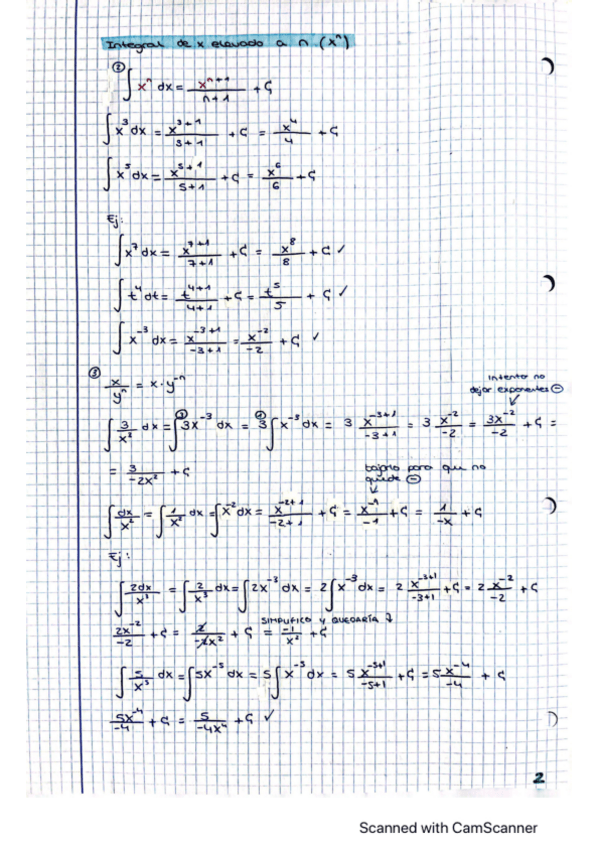 Integral de x elevado a n (xⁿ)
② ∫ xⁿ dx = xⁿ⁺¹/n+1 + C
∫ x³ dx = x³⁺¹/3+1 + C = x⁴/4 + C
∫ x⁵ dx = x⁵⁺¹/5+1 + C = x⁶/6 + C
Ej:
∫ x⁷ dx = x⁷⁺¹/7+1 + C = x⁸/8 + C ✓
∫ t⁴ dt = t⁴⁺¹/4+1 + C = t⁵/5 + C ✓
∫ x⁻³ dx = x⁻³⁺¹/-3+1 = x⁻²/-2 + C ✓
③ x/yⁿ = x · y⁻ⁿ
intentar no
dejar exponentes ⊖
∫ 3/x³ dx = ∫ 3x⁻³ dx = 3 ∫ x⁻³ dx = 3 x⁻³⁺¹/-3+1 = 3 x⁻²/-2 = 3x⁻²/-2 + C =
= 3/-2x² + C
bajarlo para que no
quede ⊖
∫ dx/x² = ∫ 1/x² dx = ∫ x⁻² dx = x⁻²⁺¹/-2+1 + C = x⁻¹/-1 + C = 1/-x + C
Ej:
∫ 2dx/x³ = ∫ 2/x³ dx = ∫ 2x⁻³ dx = 2 ∫ x⁻³ dx = 2 x⁻³⁺¹/-3+1 + C = 2 x⁻²/-2 + C
SIMPLIFICO Y QUEDARÍA ↓
2x⁻²/-2 + C = 2/-2x² + C = -1/x² + C
∫ 5/x⁵ dx = ∫ 5x⁻⁵ dx = 5 ∫ x⁻⁵ dx = 5 x⁻⁵⁺¹/-5+1 + C = 5 x⁻⁴/-4 + C
5x⁻⁴/-4 + C = 5/-4x⁴ + C ✓
2
Scanned with CamScanner